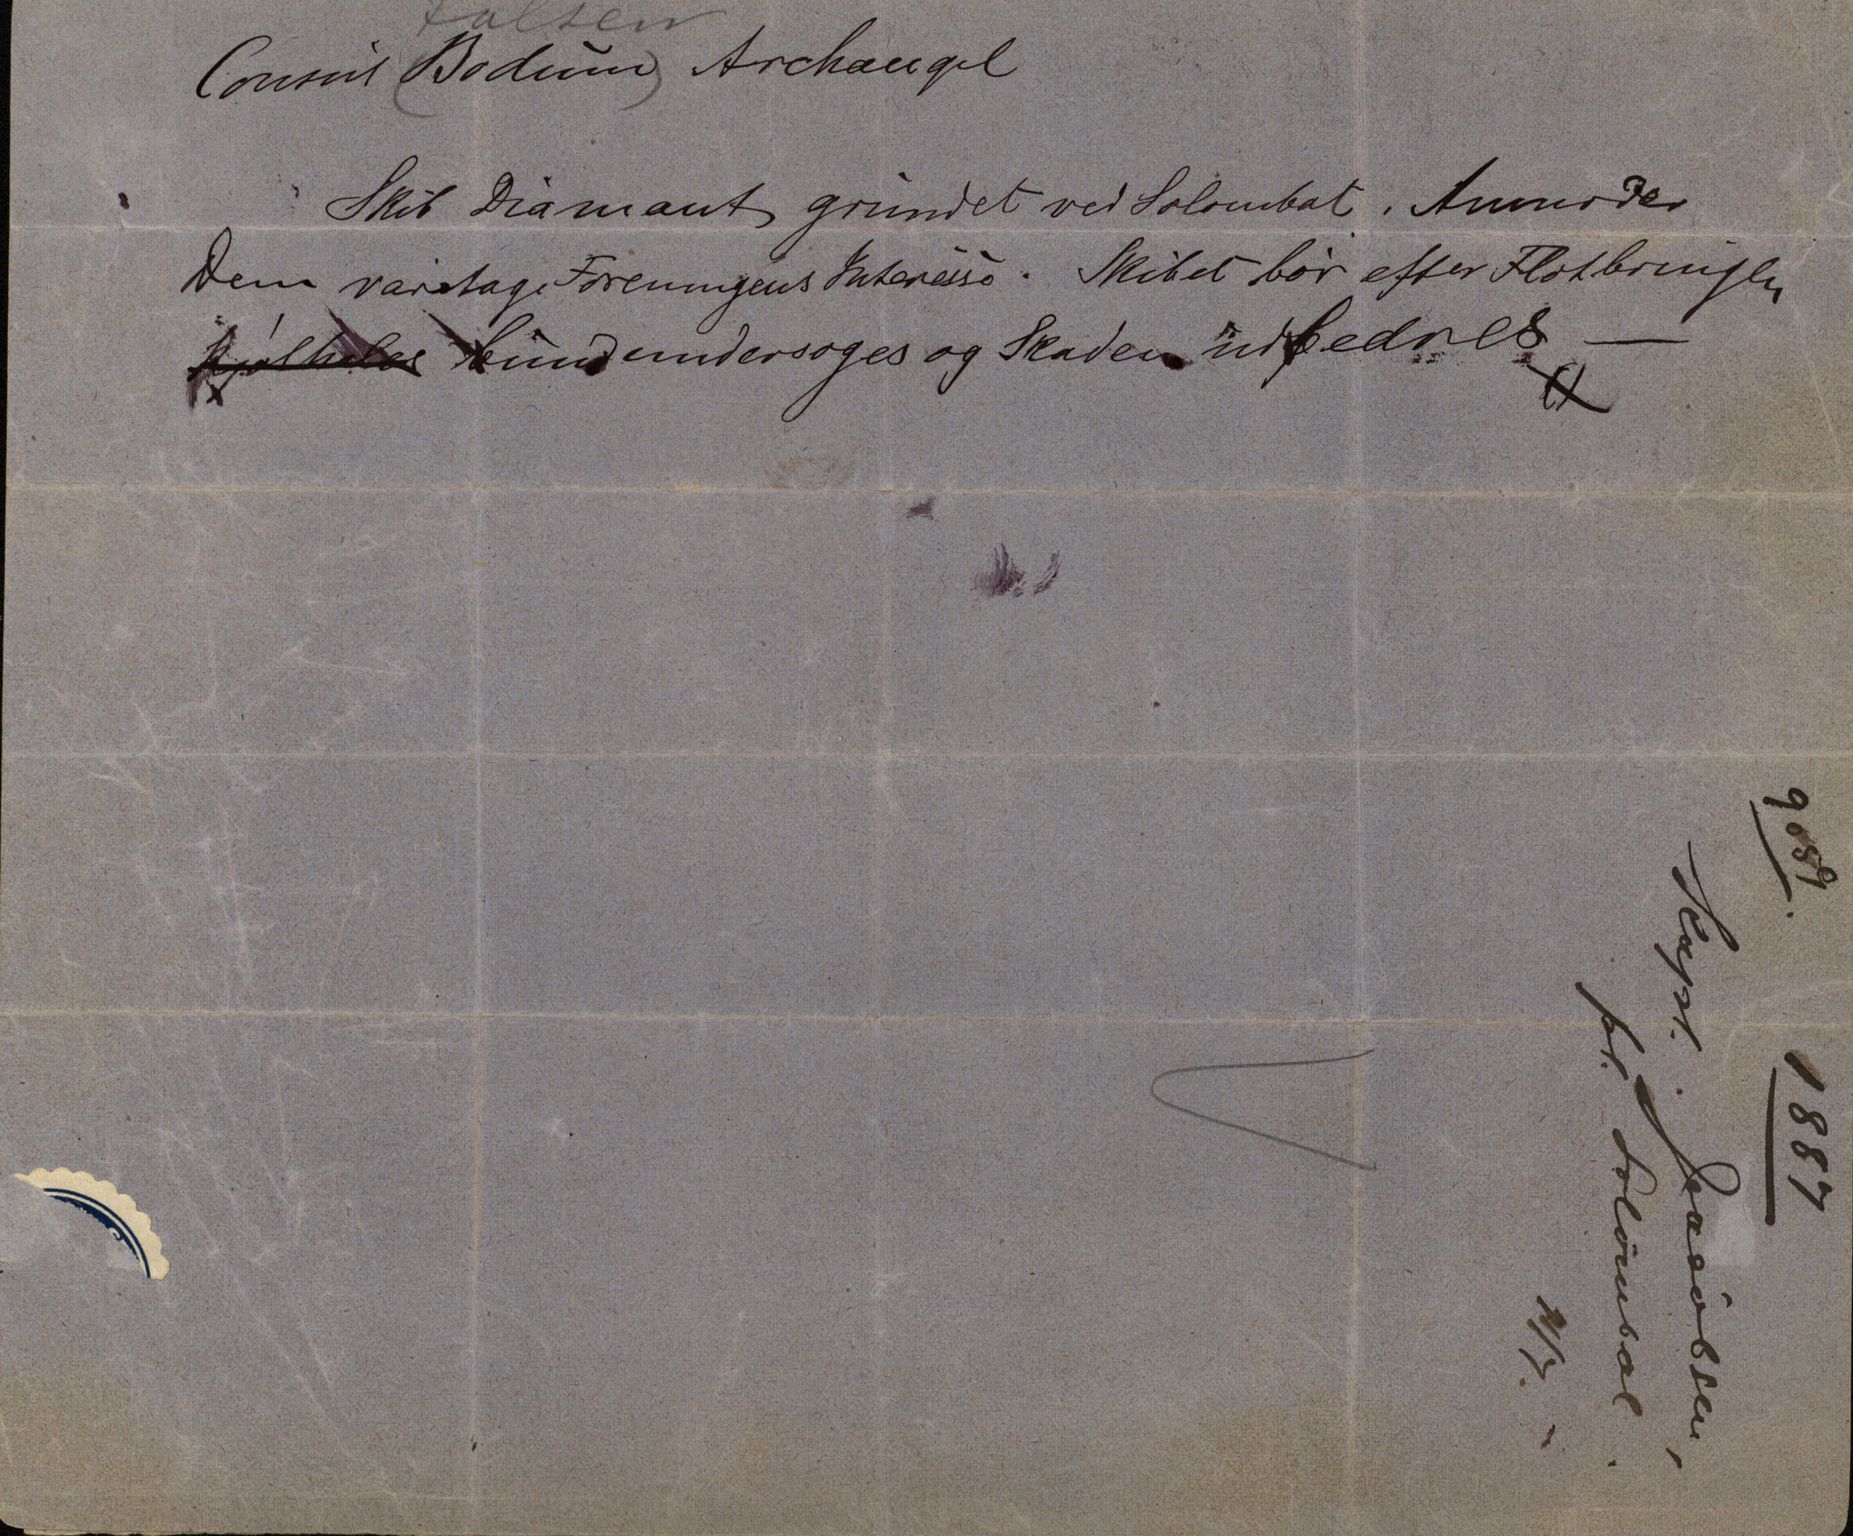 Falsen
Consul (Bodum) Archangel
Skib Diamant grundet ved Solombal. Anmoder
Dem varetage Foreningens Interesse. Skibet bør efter Flotbringlen
kjølhales bundundersøges og Skaden udbedres —
1887
Kapt. Jacobsen,
pr. Solombal.